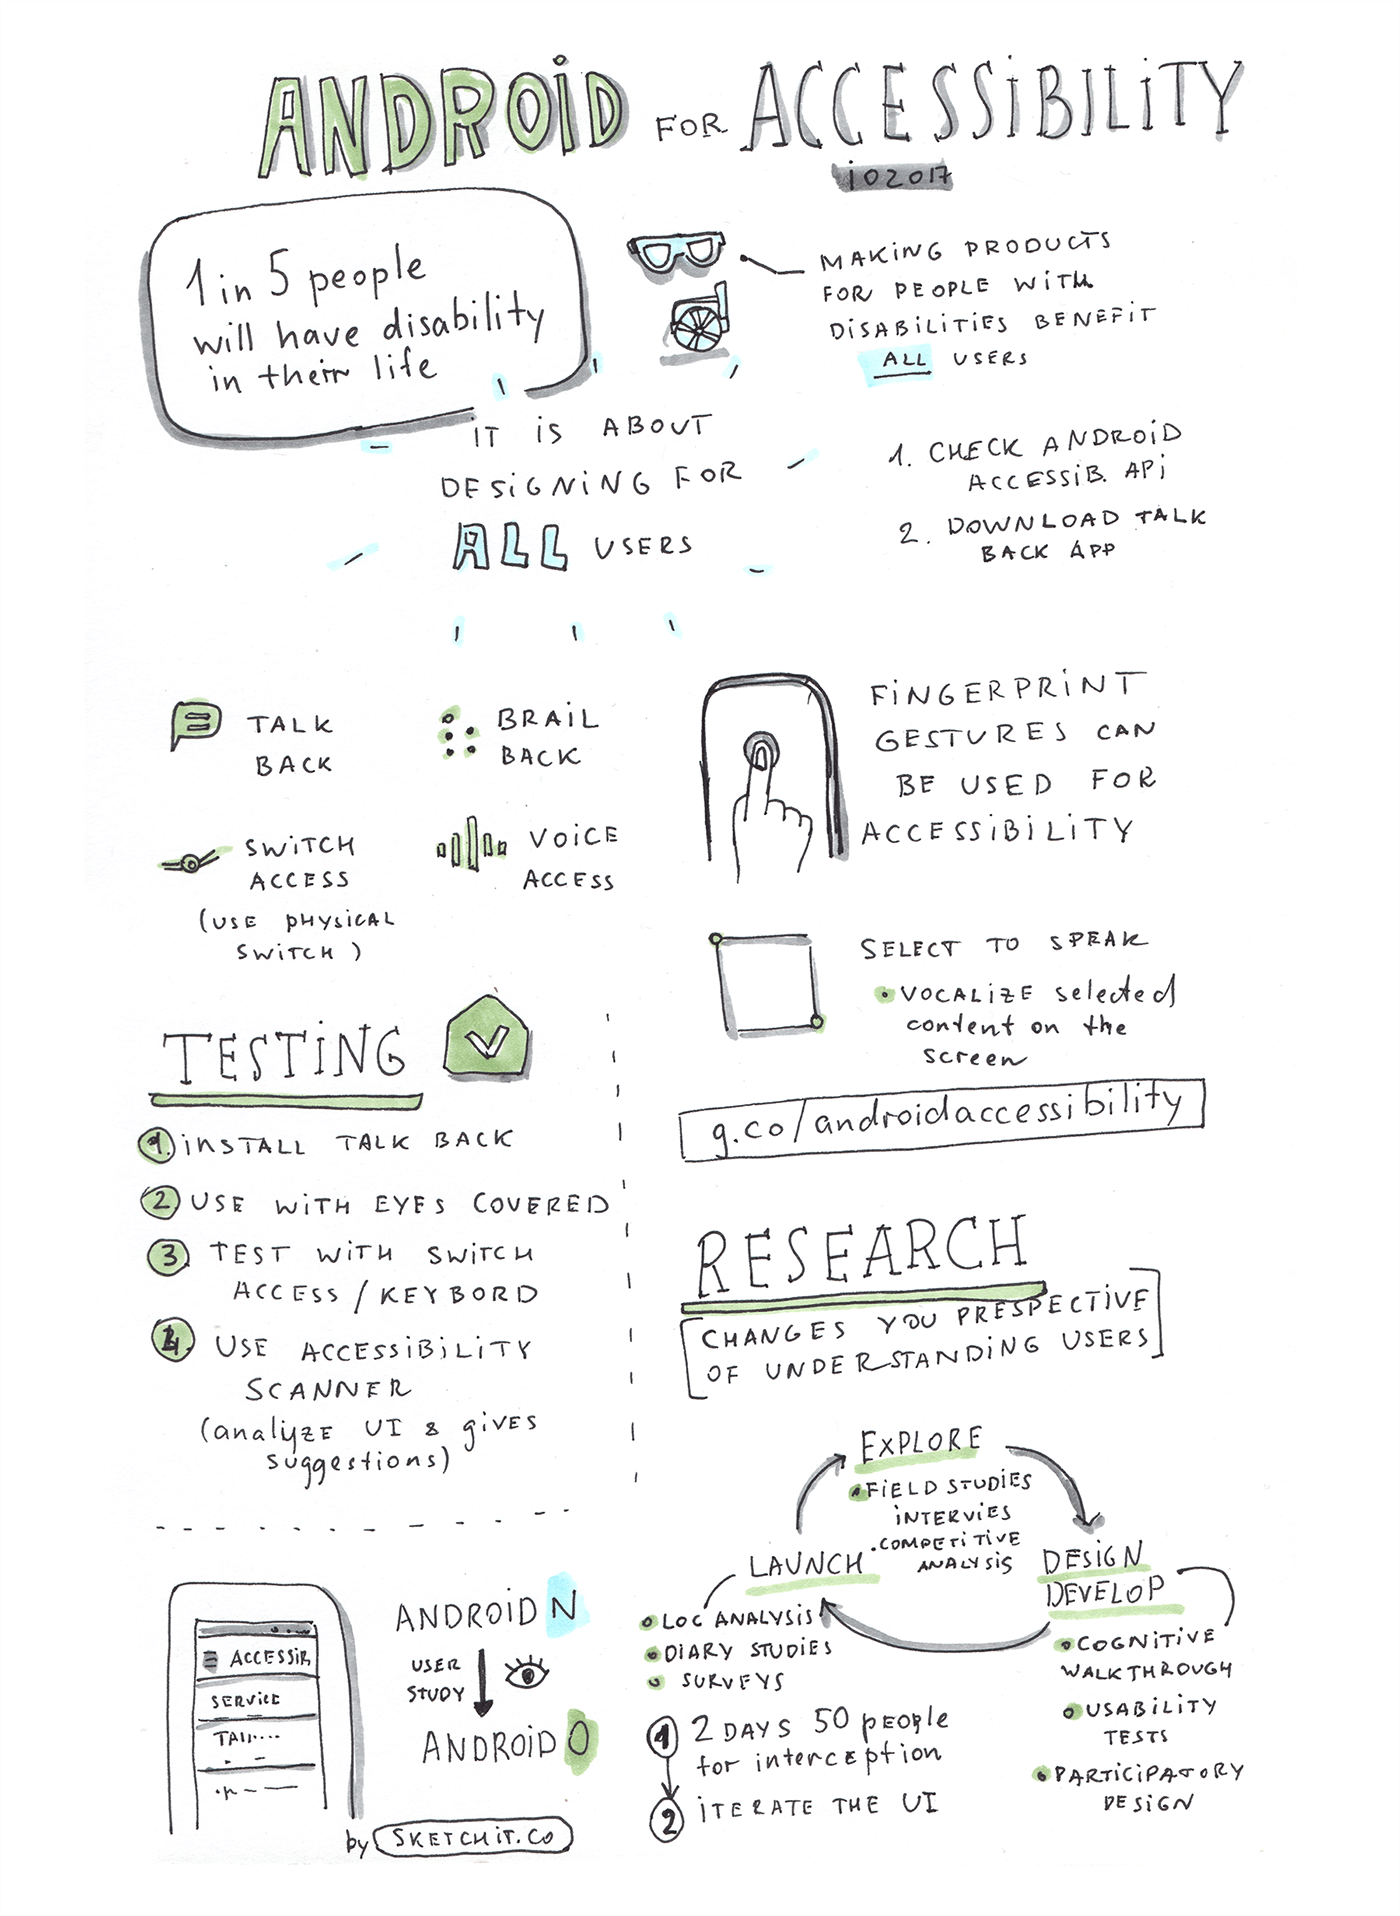 ANDROID FOR ACCESSIBILITY
io2017
1 in 5 people
will have disability
in their life
MAKING PRODUCTS
FOR PEOPLE WITH
DISABILITIES BENEFIT
ALL USERS
IT IS ABOUT
DESIGNING FOR
ALL USERS
1. CHECK ANDROID
ACCESSIB. API
2. DOWNLOAD TALK
BACK APP
TALK
BACK
BRAIL
BACK
SWITCH
ACCESS
(USE PHYSICAL
SWITCH)
VOICE
ACCESS
FINGERPRINT
GESTURES CAN
BE USED FOR
ACCESSIBILITY
SELECT TO SPEAK
• VOCALIZE selected
content on the
screen
g.co/androidaccessibility
TESTING
1. INSTALL TALK BACK
2. USE WITH EYES COVERED
3. TEST WITH SWITCH
ACCESS / KEYBORD
4. USE ACCESSIBILITY
SCANNER
(analyze UI & gives
suggestions)
RESEARCH
[CHANGES YOU PRESPECTIVE
OF UNDERSTANDING USERS]
EXPLORE
• FIELD STUDIES
INTERVIES
• COMPETITIVE
ANALYSIS
DESIGN
DEVELOP
• COGNITIVE
WALKTHROUGH
• USABILITY
TESTS
• PARTICIPATORY
DESIGN
LAUNCH
• LOG ANALYSIS
• DIARY STUDIES
• SURVEYS
1 2 DAYS 50 people
for interception
2 ITERATE THE UI
ACCESSIB
SERVICE
ANDROID N
USER
STUDY
ANDROID O
by SKETCHIT.CO